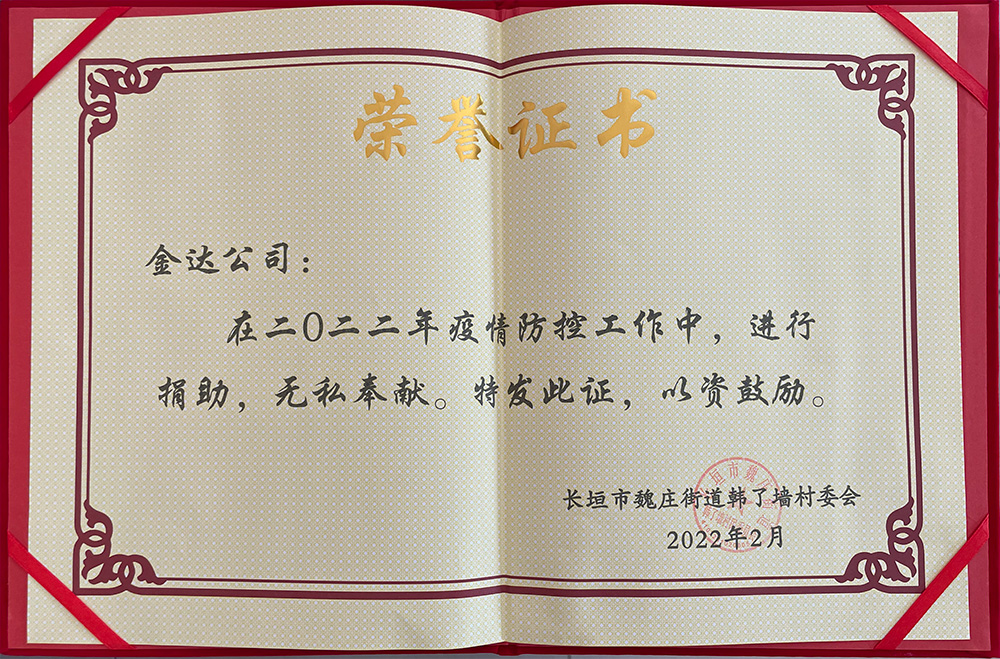 荣誉证书
金达公司：
在二〇二二年疫情防控工作中，进行
捐助，无私奉献。特发此证，以资鼓励。
长垣市魏庄街道韩了墙村委会
2022年2月